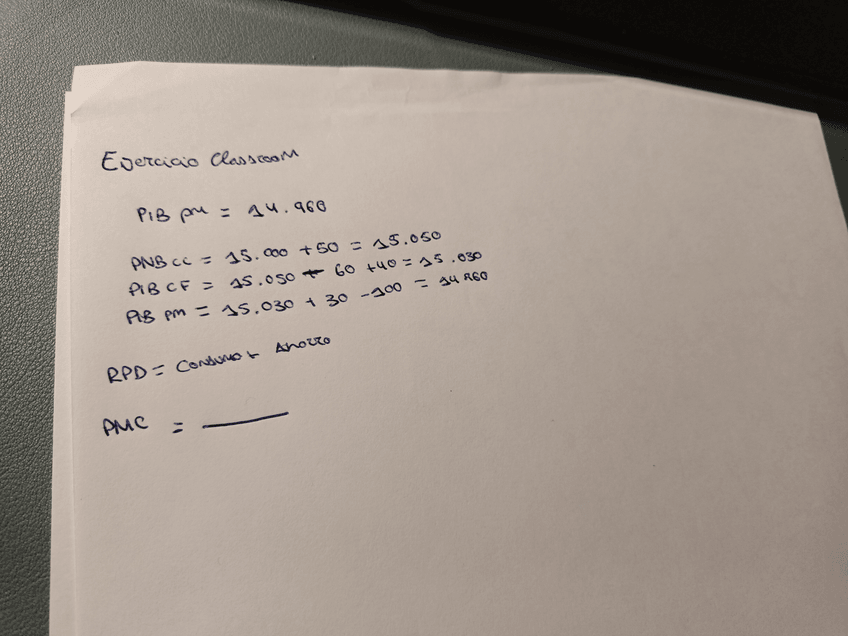 Ejercicio Classroom
PiB pm = 14.960
PNB cc = 15.000 + 50 = 15.050
PiB CF = 15.050 - 60 + 40 = 15.030
PiB pm = 15.030 + 30 - 100 = 14.960
RPD = Consumo + Ahorro
PMC =